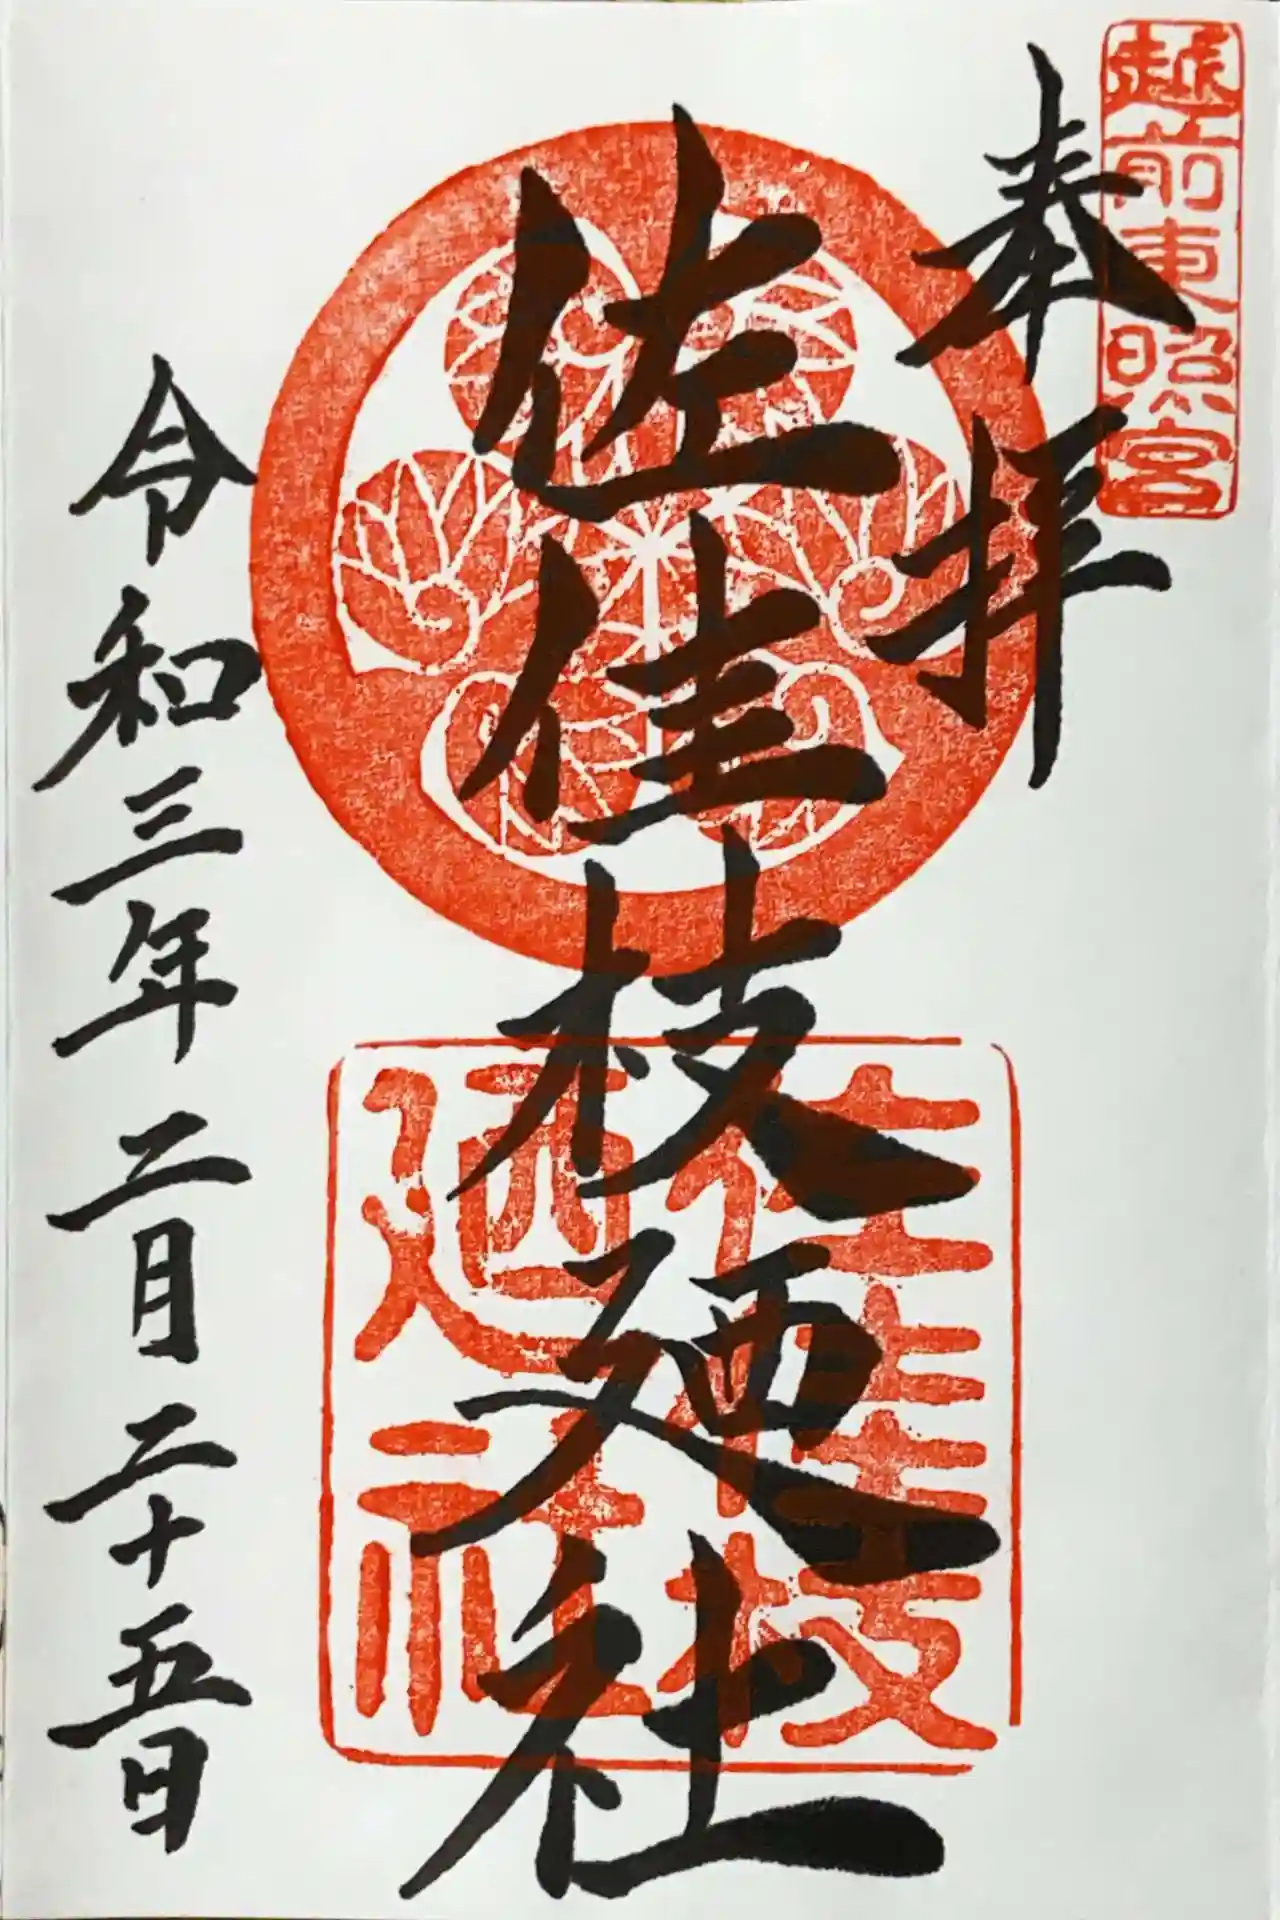 越前東照宮
奉拝
佐佳枝廼社
佐佳枝
廼社
令和三年二月二十五日